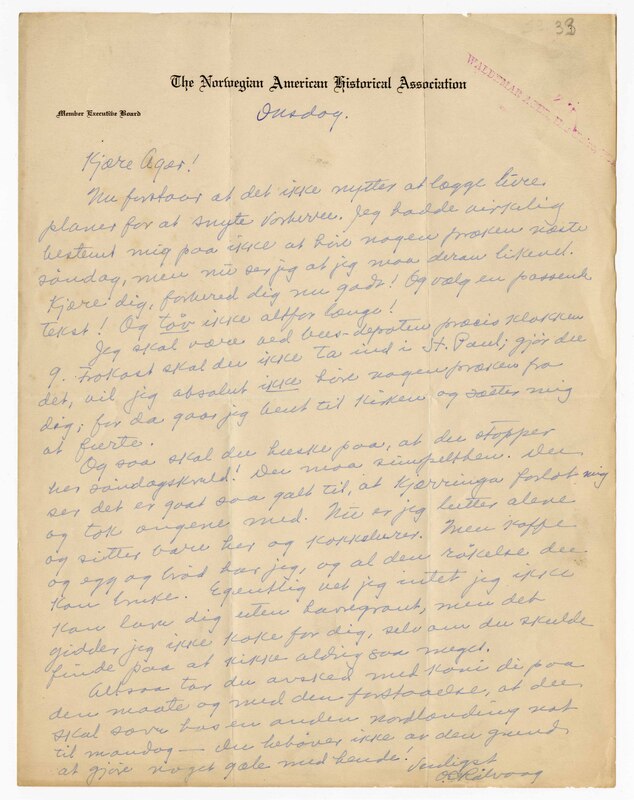 33
The Norwegian American Historical Association
Member Executive Board
WALDEMAR AGER
Onsdag.
Kjære Ager!
Nu forstaar at det ikke nytter at lægge
planer for at snyte Vorherre. Jeg hadde virkelig
bestemt mig paa ikke at høre nogen præken næste
søndag, men nu ser jeg at jeg maa deran likevel.
Kjære dig, forbered dig nu godt! Og vælg en passende
tekst! Og tøv ikke altfor længe!
Jeg skal være ved bus-depoten præcis klokken
9. Frokost skal du ikke ta ind i St. Paul; gjør du
det, vil jeg absolut ikke høre nogen præken fra
dig; for da gaar jeg bent til kirken og sætter mig
at
Og saa skal du huske paa, at du stopper
her søndagskveld! Du maa simpelthen. Du
ser det er gaat saa galt til, at Kjærringa forlot mig
og tok ungene med. Nu er jeg
og sitter bare her og kokkelurer. Men kaffe
og egg og brød har jeg, og al den røkelse du
kan bruke. Egentlig vet jeg intet jeg ikke
kan lave dig uten havregrøt, men det
gidder jeg ikke koke for dig, selv om du skulde
finde paa at kikke aldrig saa meget.
Altsaa tar du avsked med koni di paa
den maate og med den forstaaelse, at du
skal sove hos en anden nordlænding nat
til mandag — du behøver ikke av den grund
at gjøre noget gæle med hende!
Venligst
O.E. Rölvaag